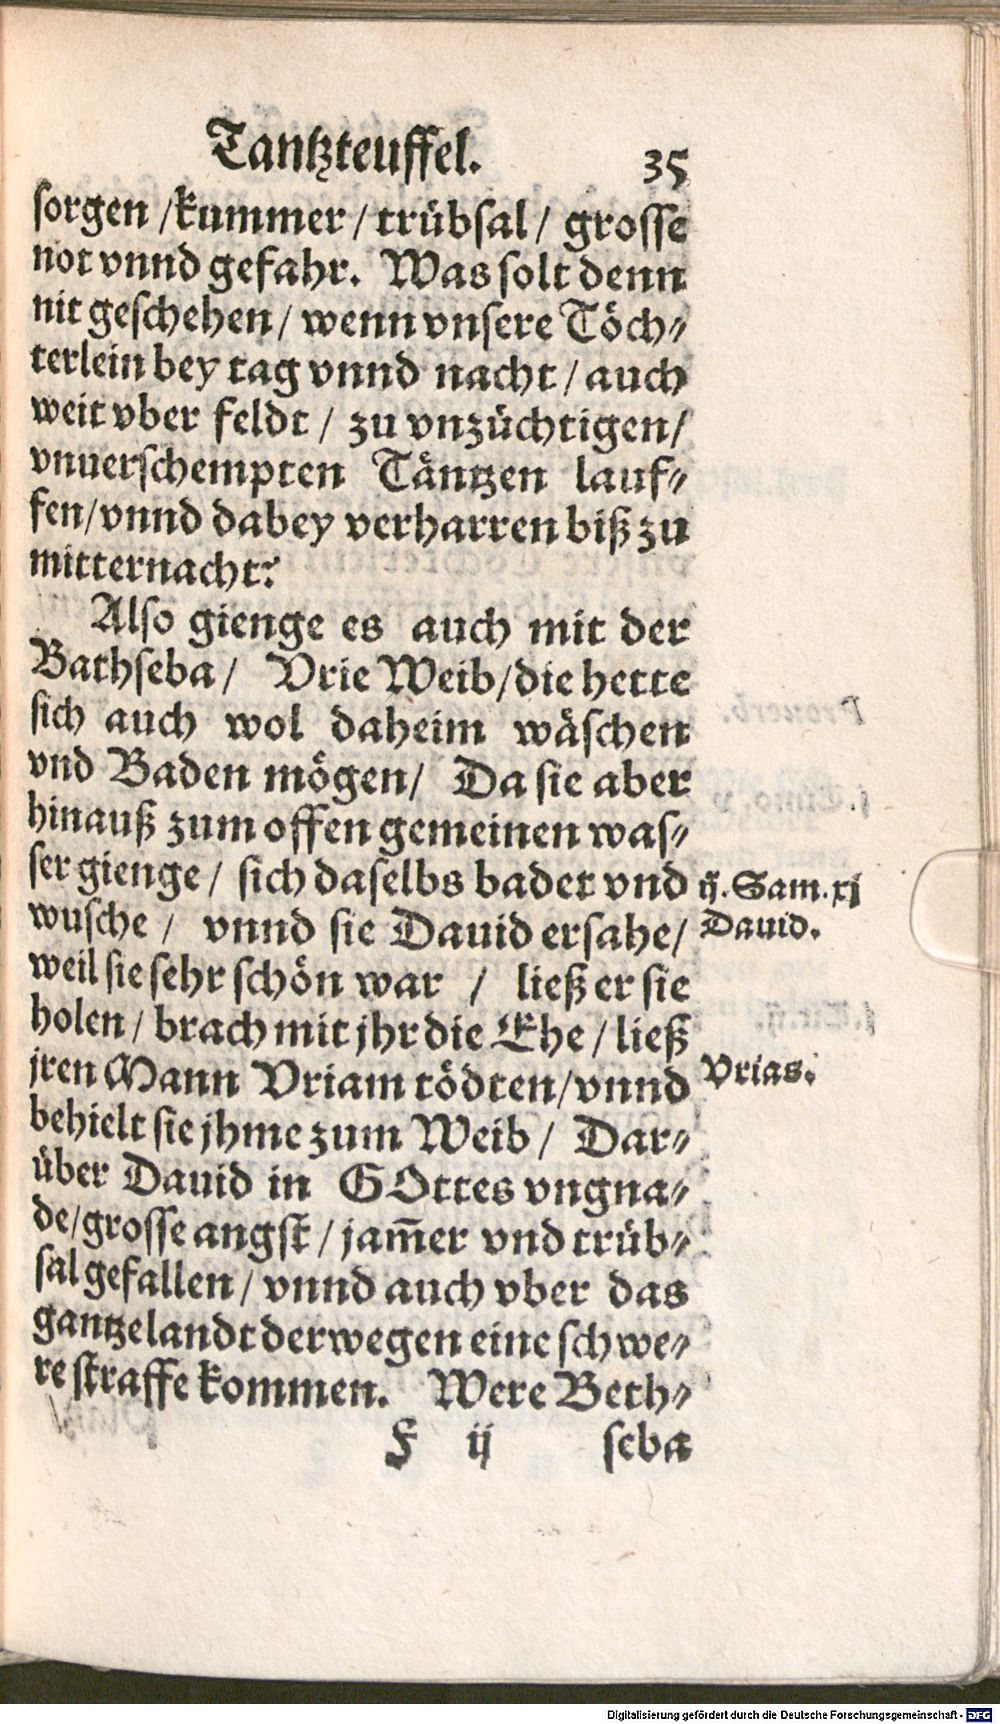 Tantzteuffel. 35
sorgen /kummer / trübsal / grosse
not vnnd gefahr. Was solt denn
nit geschehen / wenn vnsere Töch⸗
terlein bey tag vnnd nacht / auch
weit vber feldt / zu vnzüchtigen /
vnuerschempten Täntzen lauf⸗
fen/vnnd dabey verharren biß zu
mitternacht?
Also gienge es auch mit der
Bathseba / Vrie Weib/die hette
sich auch wol daheim wäschen
vnd Baden mögen / Da sie aber
hinauß zum offen gemeinen was⸗
ser gienge / sich daselbs badet vnd
wusche / vnnd sie Dauid ersahe /
weil sie sehr schön war / ließ er sie
holen / brach mit jhr die Ehe / ließ
jren Mann Vriam tödten/vnnd
behielt sie jhme zum Weib / Dar⸗
über Dauid in GOttes vngna⸗
de/grosse angst / jam̃er vnd trüb⸗
sal gefallen / vnnd auch vber das
gantze landt derwegen eine schwe⸗
re straffe kommen. Were Beth⸗
F ij seba
ij. Sam. xj
Dauid.
Vrias.
Digitalisierung gefördert durch die Deutsche Forschungsgemeinschaft - DFG